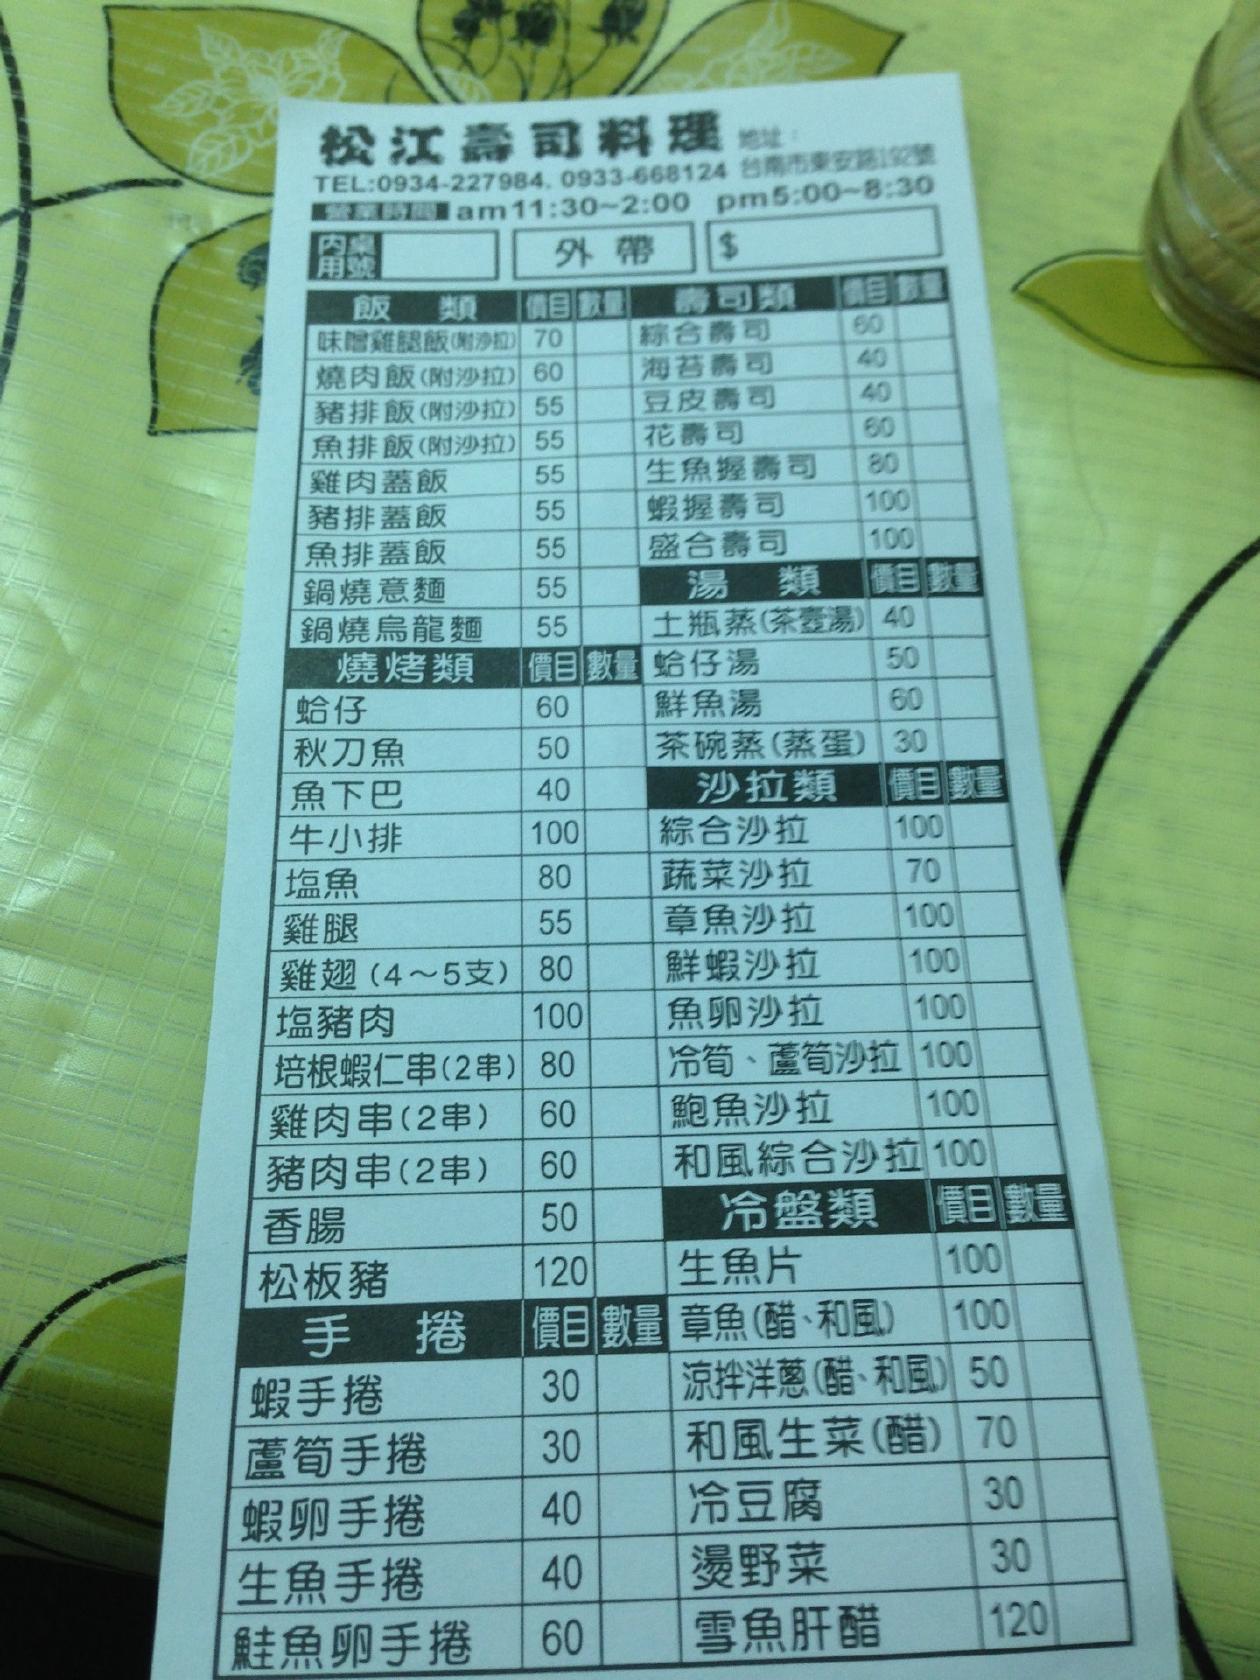 松江壽司料理
地址：
台南市東安路192號
TEL:0934-227984. 0933-668124
營業時間 am11:30~2:00 pm5:00~8:30
內用 桌號
外帶
$
飯類 價目 數量
味噌雞腿飯(附沙拉) 70
燒肉飯(附沙拉) 60
豬排飯(附沙拉) 55
魚排飯(附沙拉) 55
雞肉蓋飯 55
豬排蓋飯 55
魚排蓋飯 55
鍋燒意麵 55
鍋燒烏龍麵 55
燒烤類 價目 數量
蛤仔 60
秋刀魚 50
魚下巴 40
牛小排 100
塩魚 80
雞腿 55
雞翅(4～5支) 80
塩豬肉 100
培根蝦仁串(2串) 80
雞肉串(2串) 60
豬肉串(2串) 60
香腸 50
松板豬 120
手捲 價目 數量
蝦手捲 30
蘆筍手捲 30
蝦卵手捲 40
生魚手捲 40
鮭魚卵手捲 60
壽司類 價目 數量
綜合壽司 60
海苔壽司 40
豆皮壽司 40
花壽司 60
生魚握壽司 80
蝦握壽司 100
盛合壽司 100
湯類 價目 數量
土瓶蒸(茶壺湯) 40
蛤仔湯 50
鮮魚湯 60
茶碗蒸(蒸蛋) 30
沙拉類 價目 數量
綜合沙拉 100
蔬菜沙拉 70
章魚沙拉 100
鮮蝦沙拉 100
魚卵沙拉 100
冷筍、蘆筍沙拉 100
鮑魚沙拉 100
和風綜合沙拉 100
冷盤類 價目 數量
生魚片 100
章魚(醋、和風) 100
涼拌洋蔥(醋、和風) 50
和風生菜(醋) 70
冷豆腐 30
燙野菜 30
雪魚肝醋 120